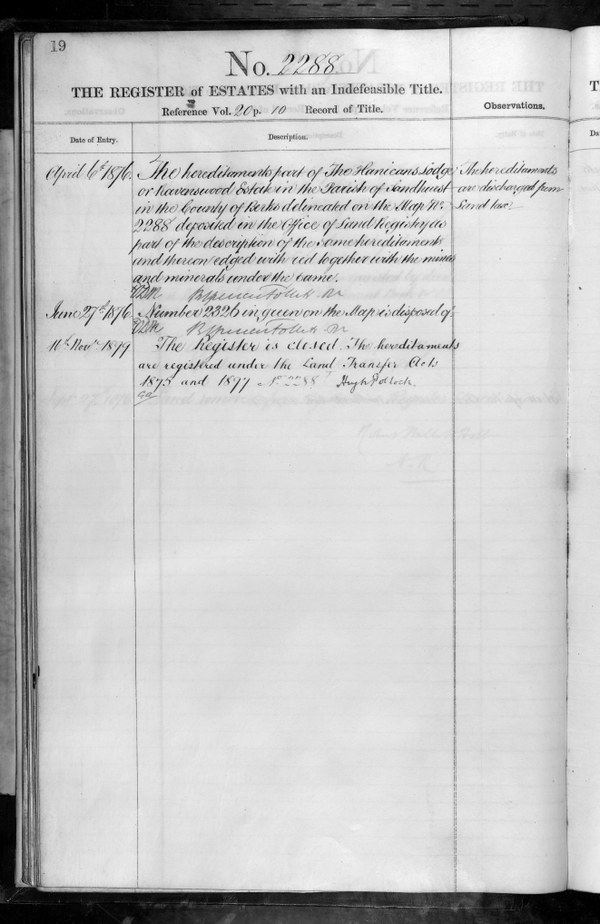 19
No. 2288
THE REGISTER of ESTATES with an Indefeasible Title.
Reference Vol. 20 p. 10 Record of Title.
Observations.
Date of Entry.
Description.
April 6th 1876. The hereditaments part of The Hanicans Lodge
or Ravenswood Estate in the Parish of Sandhurst
in the County of Berks delineated on the Map No.
2288 deposited in the Office of Land Registry as
part of the description of the same hereditaments
and thereon edged with red together with the mines
and minerals under the same.
The hereditaments
are discharged from
Land tax.
June 27th 1876. Number 2326 in green on the Map is disposed of.
11th Novr 1899 The Register is closed. The hereditaments
are registered under the Land Transfer Acts
1875 and 1897 No 2288 Hugh Pollock.